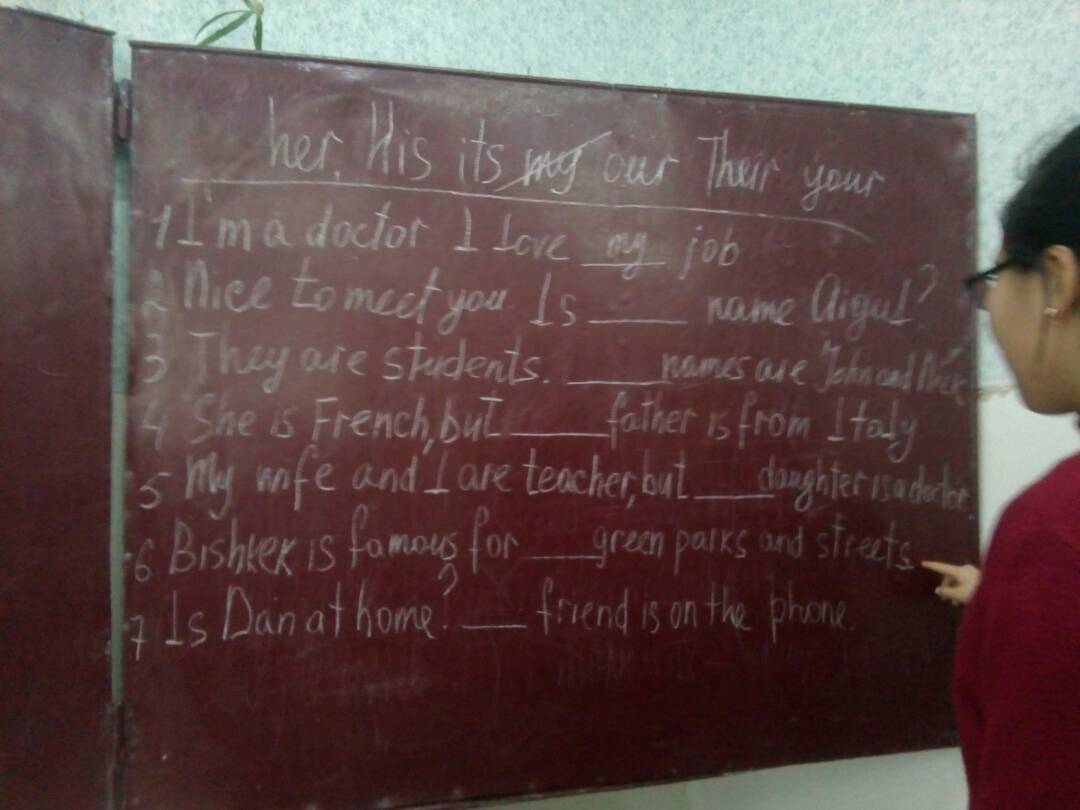 her. His its my our Their your
1 I'm a doctor I Love my job
2 Nice to meet you Is ____ name Aigul?
3 They are students. ____ names are John and
4 She is French, but ____ father is from Italy
5 My wife and I are teacher, but ____ daughter is a doctor
6 Bishkek is famous for ____ green parks and streets.
7 Is Dan at home? ____ friend is on the phone.